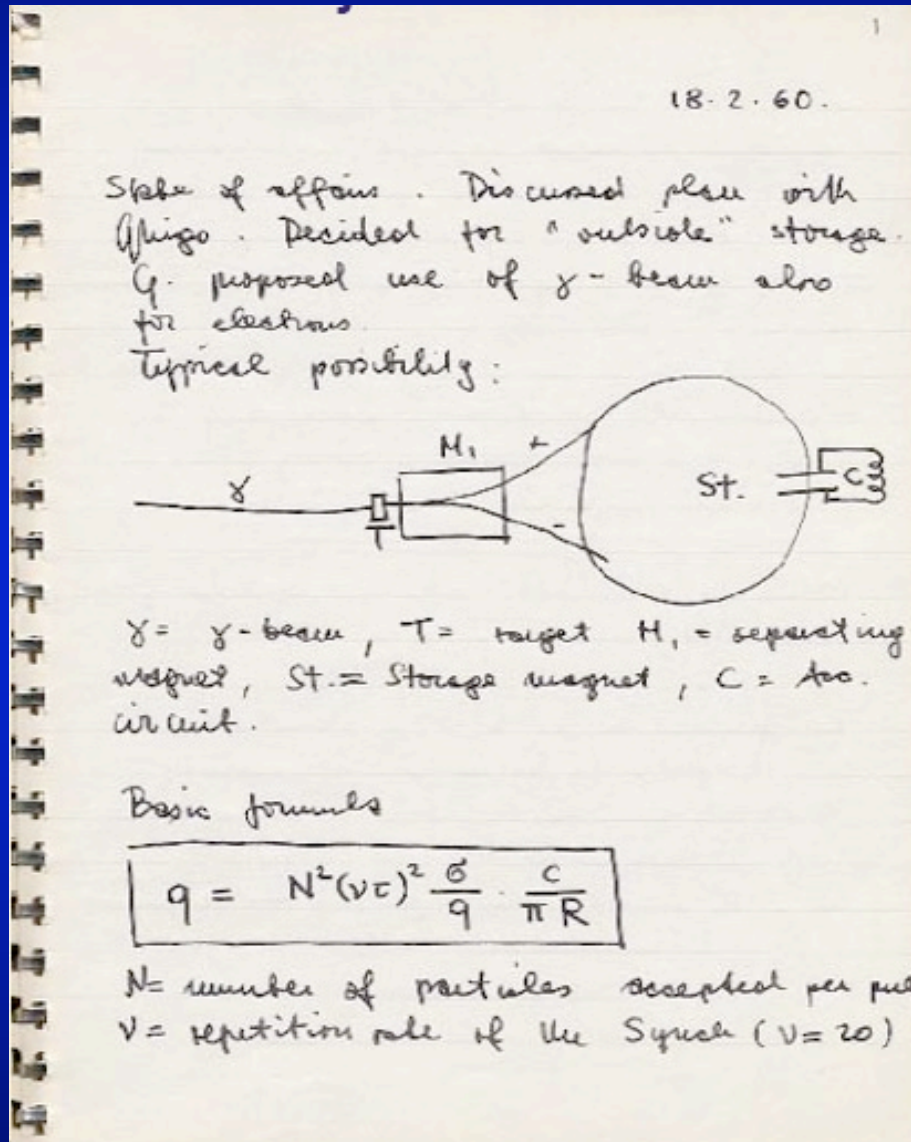 1
18.2.60.
State of affairs. Discussed plan with
Ghigo. Decided for "outside" storage.
G. proposed use of γ-beam also
for electrons.
Typical possibility:
M₁
+
γ
St.
C
-
γ = γ-beam, T = target M₁ = separating
magnet, St. = Storage magnet, C = Acc.
circuit.
Basic formula
q = N²(ντ)² σ/q · c/πR
N = number of particles accepted per pul
ν = repetition rate of the Synch (ν = 20)